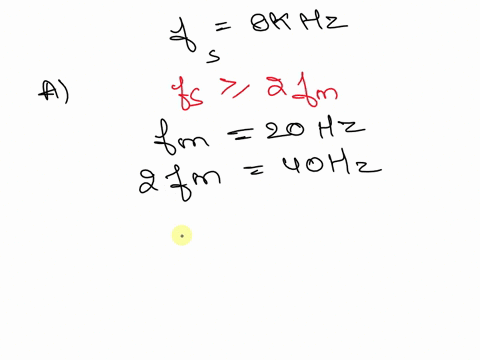 fs = 8KHz
A) fs ≥ 2fm
fm = 20Hz
2fm = 40Hz